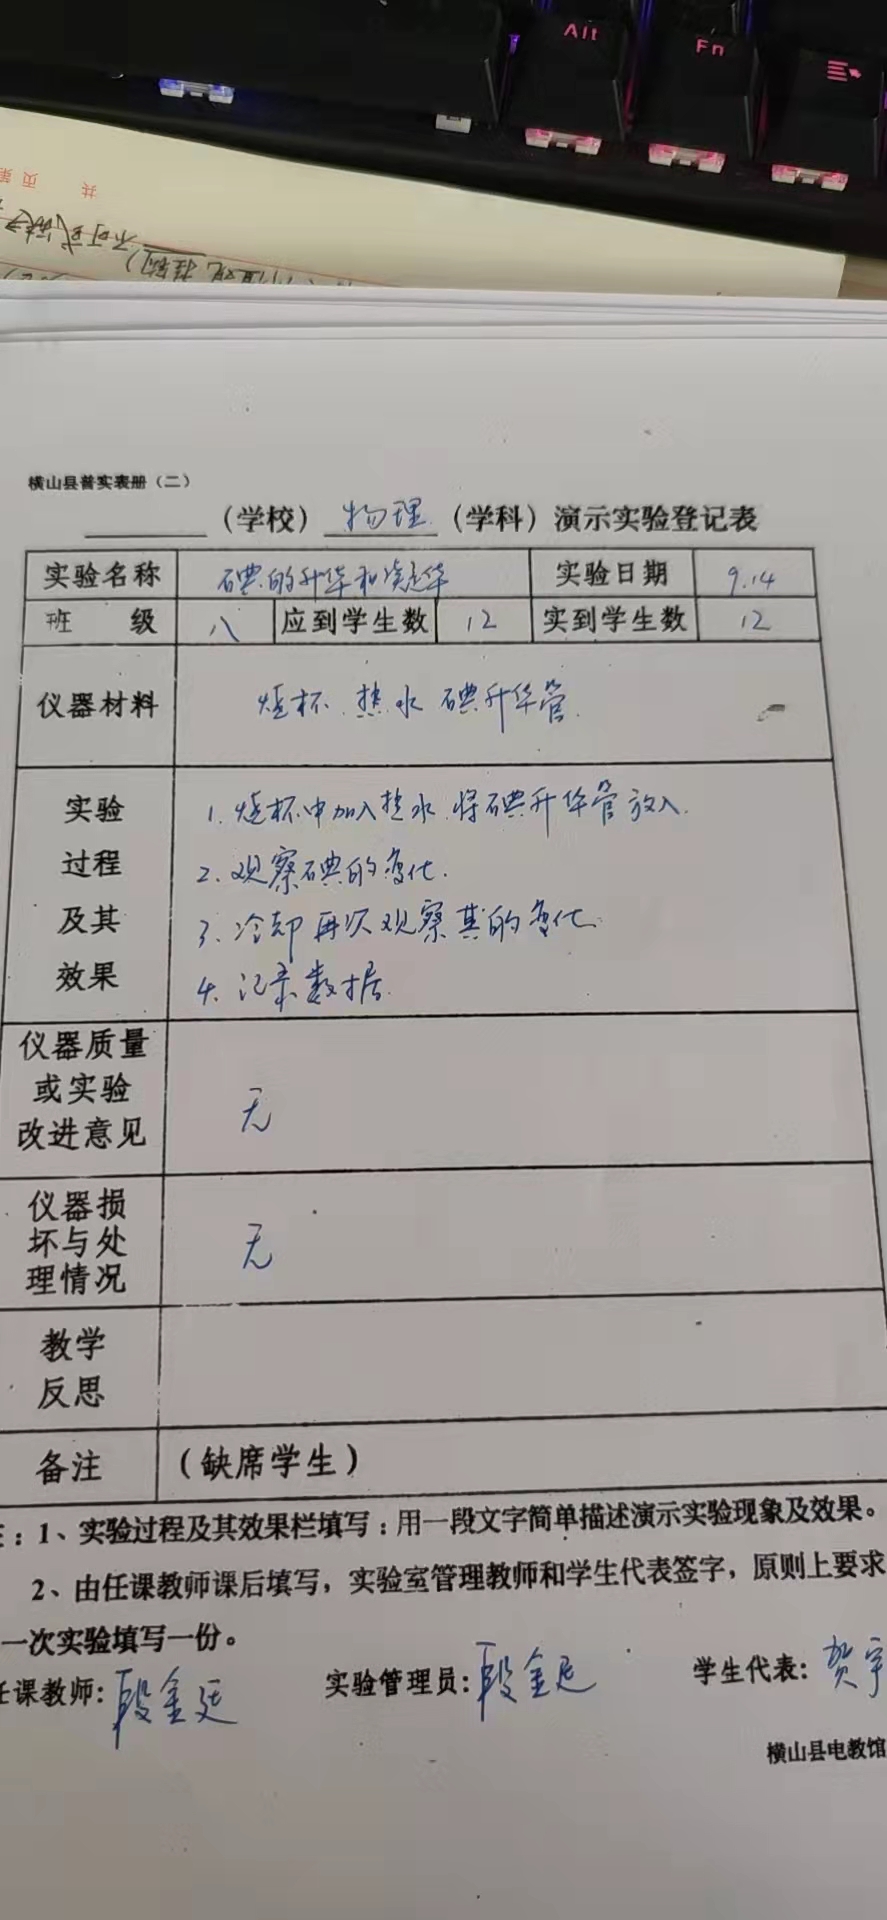 Alt
Fn
共 页 第
横山县普实表册（二）
（学校）物理（学科）演示实验登记表
实验名称 碘的升华和凝华 实验日期 9.14
班 级 八 应到学生数 12 实到学生数 12
仪器材料 烧杯 热水 碘升华管.
实验 1. 烧杯中加入热水.将碘升华管放入.
过程 2. 观察碘的变化.
及其 3. 冷却再次观察其的变化.
效果 4. 记录数据.
仪器质量
或实验
改进意见 无
仪器损
坏与处
理情况 无
教学
反思
备注 （缺席学生）
：1、实验过程及其效果栏填写：用一段文字简单描述演示实验现象及效果。
2、由任课教师课后填写，实验室管理教师和学生代表签字，原则上要求
一次实验填写一份。
任课教师：段金廷 实验管理员：段金廷 学生代表：贺宇
横山县电教馆